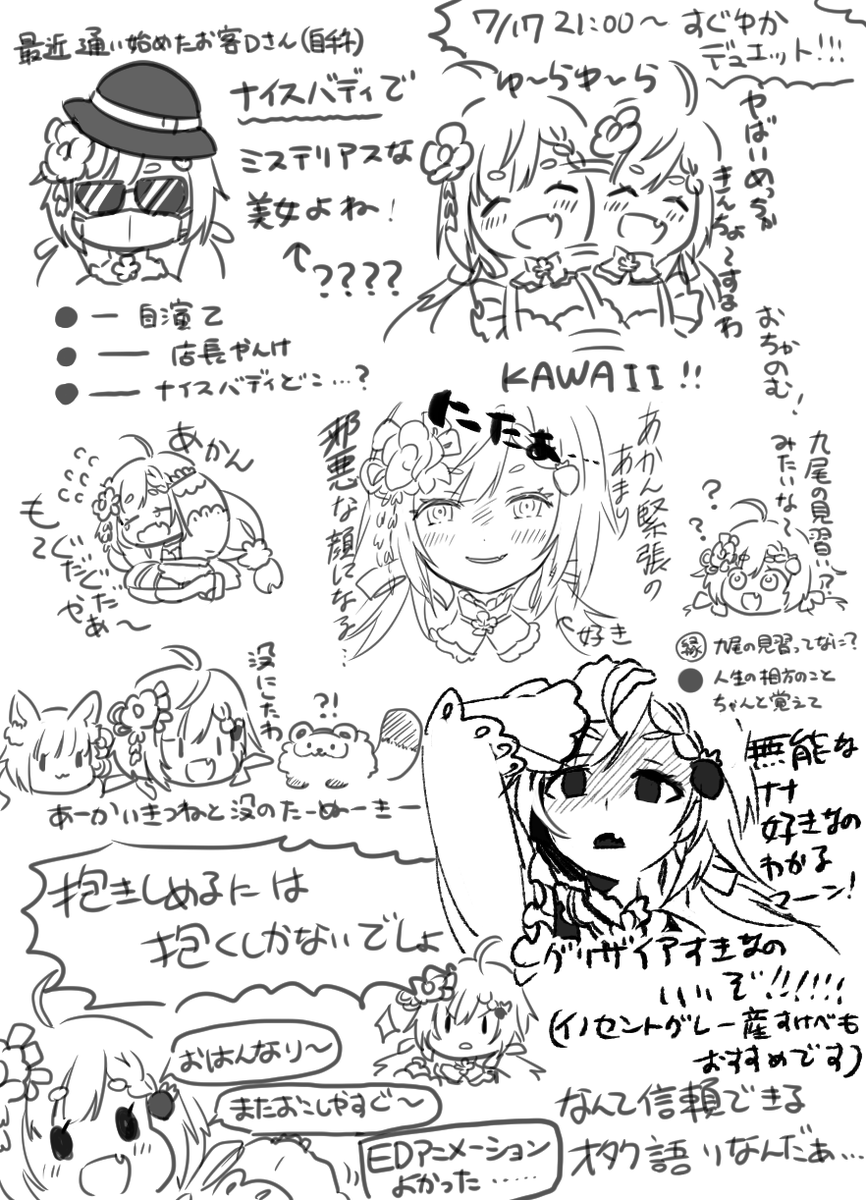 最近通い始めたお客Dさん(自称)
ナイスバディで
ミステリアスな
美女よね!
↑????
● ー 自演て
● ー 店長やんけ
● ー ナイスバディどこ…?
7/17 21:00〜 すぐゆか
デュエット!!!
ゆ〜らゆ〜ら
やばいめっちゃ
きんちょ〜するわ
おちゃのむ!
KAWAII!!
あかん
もてぐだぐだやだぁ〜
にたぁ…
あかん緊張の
あまり
邪悪な顔になる…
好き
九尾の見習い?
みたいな〜
? ?
縁 九尾の見習ってなに?
● 人生の相方のこと
ちゃんと覚えて
没にしたわ
?!
あーかいきつねと没のたーぬーきー
無能な
ナナ
好きなの
わかる
マーン!
抱きしめるには
抱くしかないでしょ
グリザイアすきなの
いいぞ!!!!!!
(イノセントグレー産すけべも
おすすめです)
おはんなり〜
またおこしやすど〜
EDアニメーション
よかった……
なんて信頼できる
オタク語りなんだぁ…